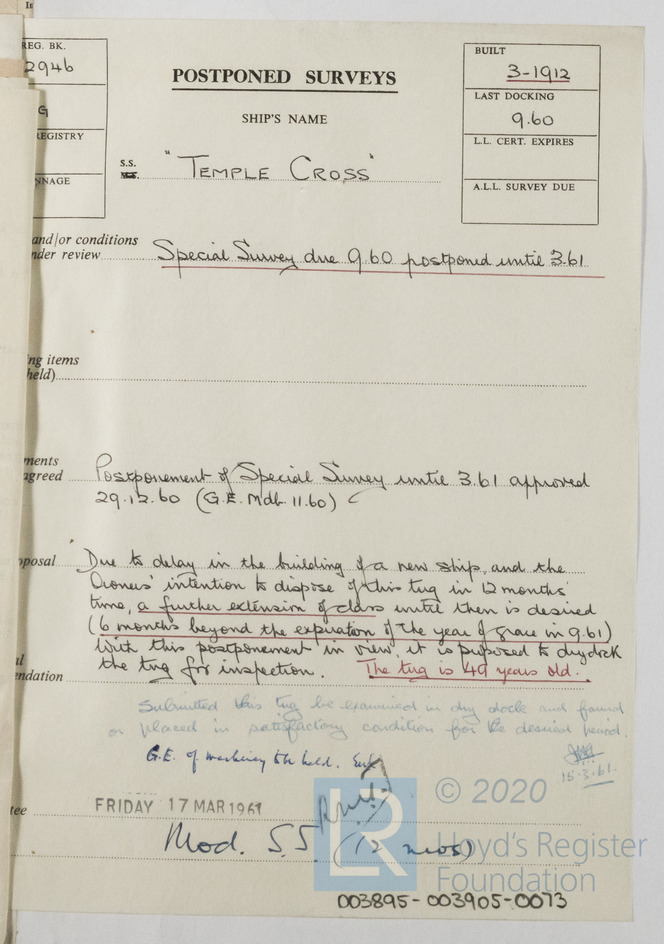 REG. BK.
2946
G
REGISTRY
NNAGE
POSTPONED SURVEYS
SHIP'S NAME
S.S. "TEMPLE CROSS"
BUILT
3-1912
LAST DOCKING
9.60
L.L. CERT. EXPIRES
A.L.L. SURVEY DUE
and/or conditions
nder review Special Survey due 9.60 postponed until 3.61
ng items
held)
ments
agreed Postponement of Special Survey until 3.61 approved
29.12.60 (G.E. Mdb. 11.60)
oposal Due to delay in the building of a new ship, and the
Owners' intention to dispose of this tug in 12 months'
time, a further extension of class until then is desired
(6 months beyond the expiration of the year of grace in 9.61)
With this postponement in view, it is proposed to drydock
the tug for inspection. The tug is 49 years old.
ndation
Submitted this tug be examined in dry dock and found
or placed in satisfactory condition for the desired period.
G.E. of machinery to be held.
15.3.61.
tee FRIDAY 17 MAR 1961
Mod. S.S. (12 mos)
© 2020
LR
Lloyd's Register
Foundation
003895-003905-0073